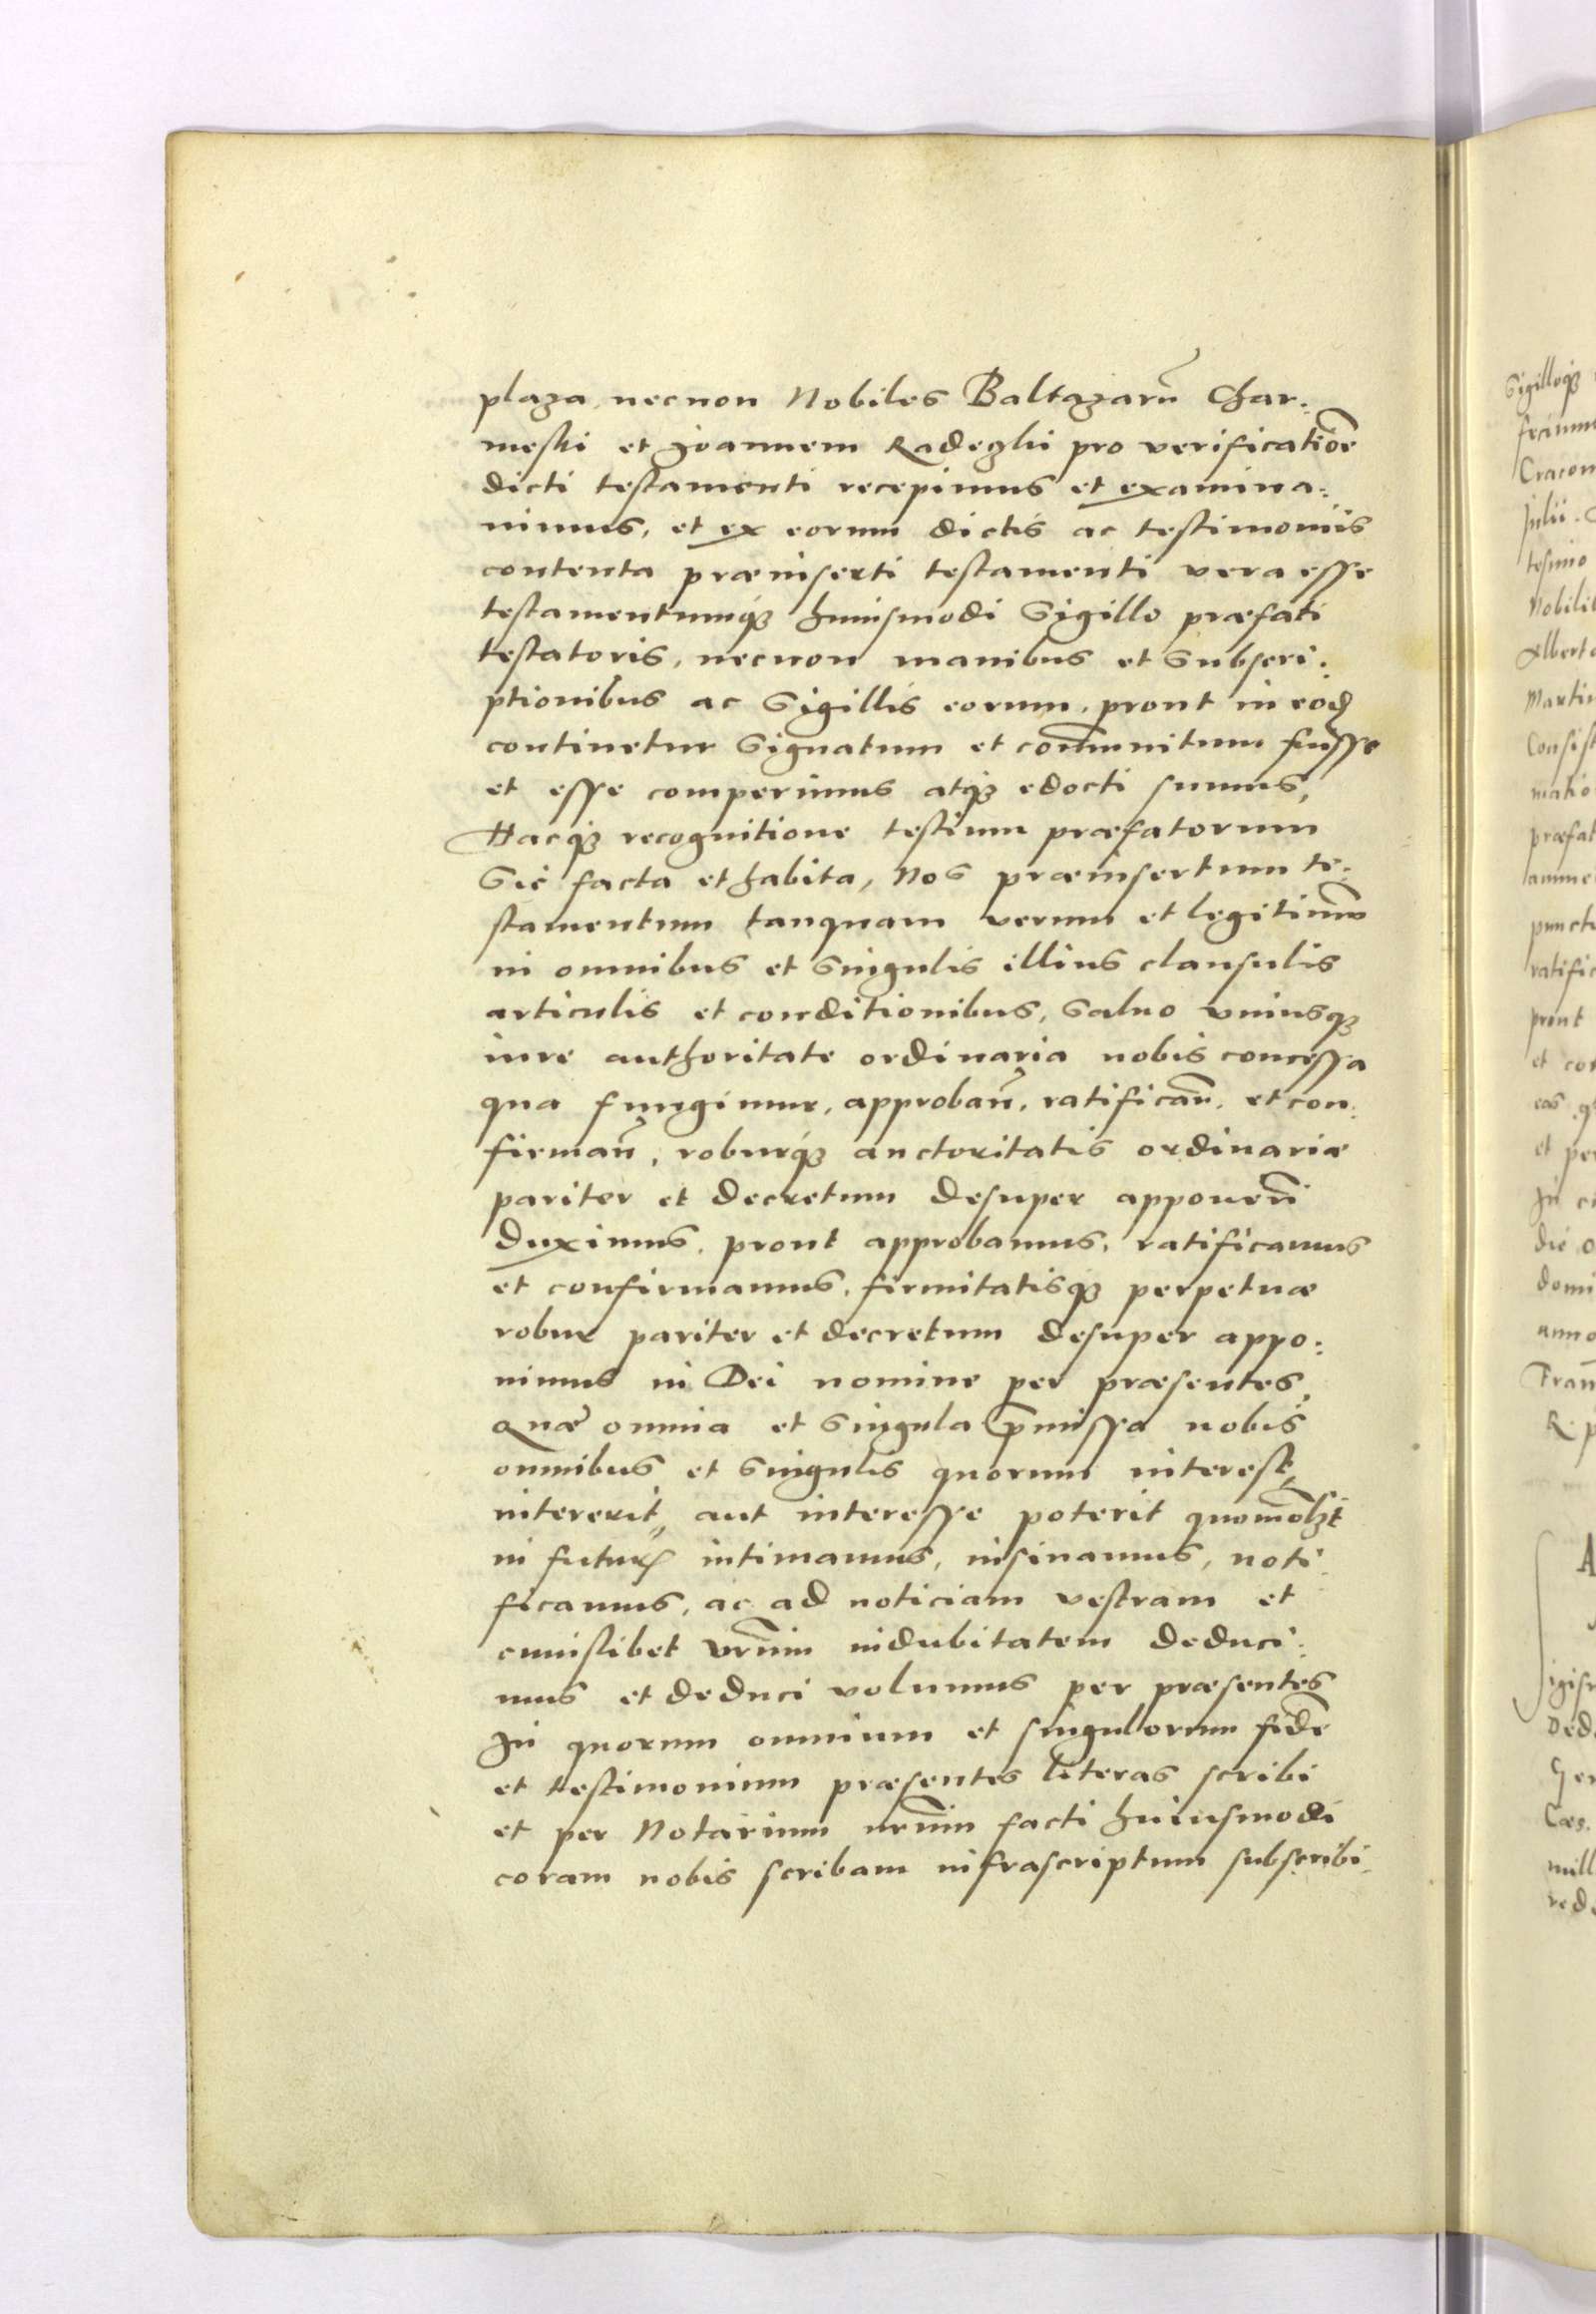 plaza, necnon Nobiles Baltazarũ Char:
meski et Joannem Radeghi pro verificatiõe
dicti testamenti recepimus et examina:
uimus, et ex eorum dictis ac testimoniis
contenta præinserti testamenti vera esse
testamentumq₃ huiusmodi Sigillo præfati
testatoris, necnon manibus et Subscri:
ptionibus ac Sigillis eorum, prout in eod
continetur Signatum et com̃unitum fuisse
et esse comperimus atq₃ edocti sumus,
Hacq₃ recognitione testium præfatorum
Sic facta et habita, Nos præinsertum te:
stamentum tanquam verum et legitimũ
in omnibus et Singulis illius clausulis
articulis et conditionibus, Saluo vniusq₃
iure authoritate ordinaria nobis concessa
qua fungimur, approban̄, ratifican̄, et con:
firman̄, roburq₃ auctoritatis ordinariæ
pariter et decretum desuper apponen̄
duximus, prout approbamus, ratificamus
et confirmamus, firmitatisq₃ perpetuæ
robur pariter et decretum desuper appo:
nimus in Dei nomine per præsentes,
Quæ omnia et Singula p̄missa nobis
omnibus et Singulis quorum interest,
intererit, aut interesse poterit quomõlzt
in futurꝝ intimamus, insinamus, noti:
ficamus, ac ad noticiam vestram et
cuiuslibet vr̃um indubitatem deduci:
mus et deduci volumus per præsentes
In quorum omnium et singulorum fidẽ
et testimonium præsentes literas scribi
et per Notarium nr̃um facti huiusmodi
coram nobis scribam infrascriptum subscribi
Sigilloq₃
Cracou
Julii.
tesimo
Nobili
Albert
Martin
Consist
matio
præfat
punct
ratific
prout
et con
et per
In
die
domi
anno
Fran